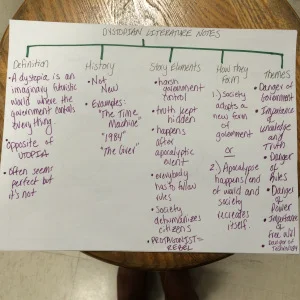 DYSTOPIAN LITERATURE NOTES
Definition
• A dystopia is an
imaginary futuristic
world where the
government controls
everything
Opposite of
UTOPIA
• Often seems
perfect but
it's not
History
• Not
New
• Examples:
"The Time
Machine"
"1984"
"The Giver"
Story Elements
• harsh
government
control
• truth kept
hidden
• happens
after
apocalyptic
event
• everybody
has to follow
rules
• Society
dehumanizes
citizens
• PROTAGONIST =
REBEL
How they
Form
1.) Society
adopts a
new form
of
government
or
2.) Apocalypse
happens/end
of world and
society
recreates
itself.
Themes
• Danger of
Government
• Importance
of
Knowledge
and
Truth
• Danger
of
Rules
• Danger
of
Power
• Importance
of
Free Will
• Danger of
Technology